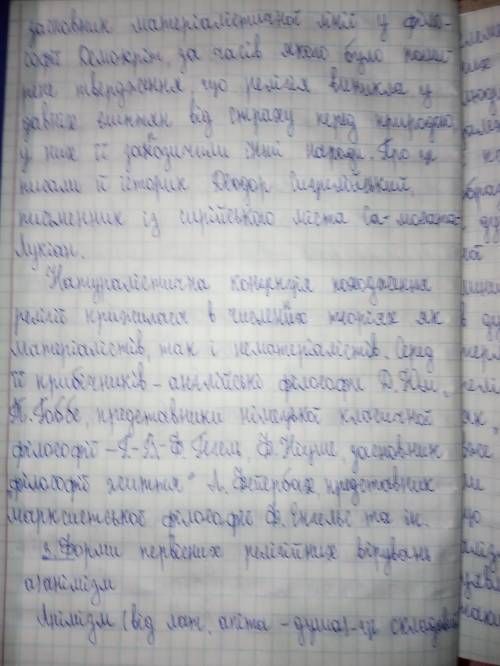 засновник матеріалістичної лінії у філо-
софії Демокріт, за часів якого було поши
рене твердження, що релігія виникла у
давніх єгиптян від страху перед природою,
у них її запозичили інші народи. Про це
писали й історик Діодор Сицилійський,
письменник із сирійського міста Са-мосата
Лукіан.
Натуралістична концепція походження
релігії прижилася в численних теоріях як
матеріалістів, так і нематеріалістів. Серед
її прибічників - англійські філософи Д. Юм,
Т. Гоббс, представники німецької класичної
філософії - Г-В-Ф. Гегель, Ф. Ніцше, засновник
філософії життя" Л. Фейєрбах, представник
марксистської філософії Ф. Енгельс та ін.
3. Форми первісних релігійних вірувань
а) анімізм
Анімізм (від лат. аніта - душа) - це складова